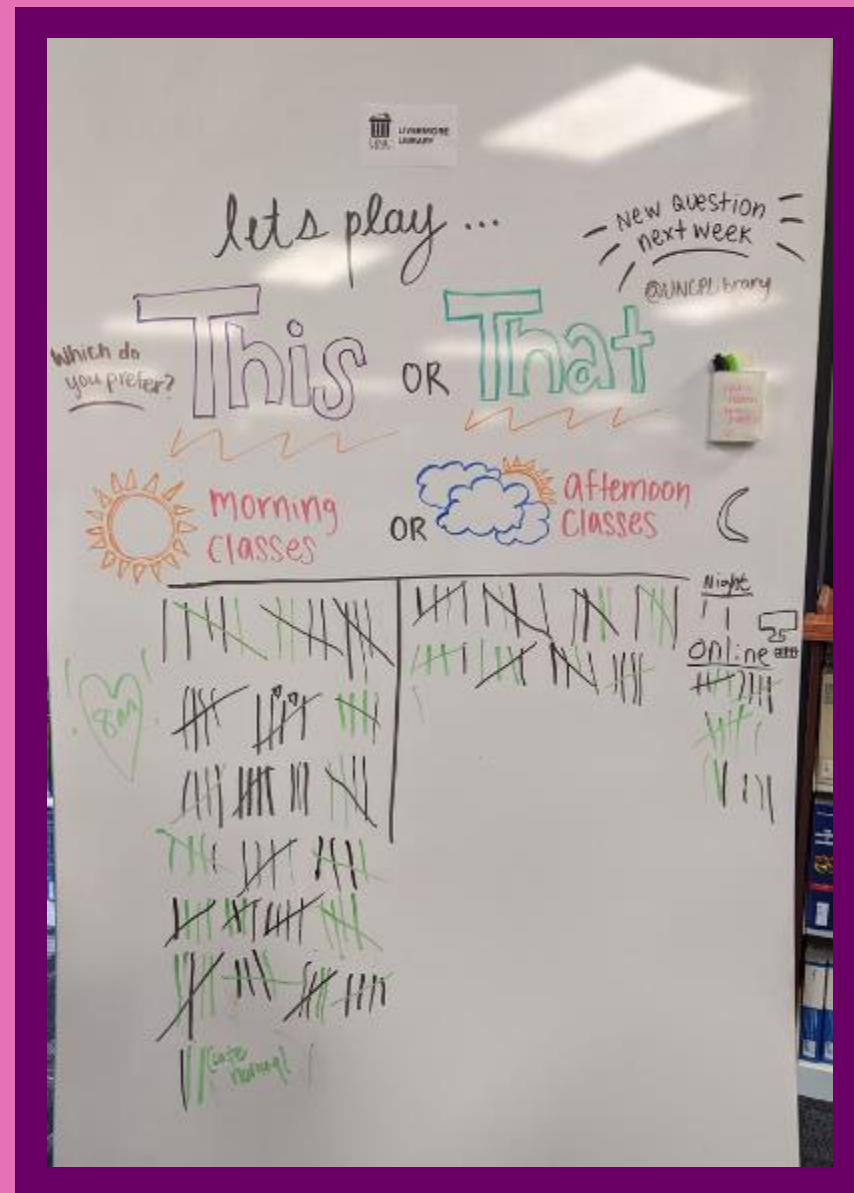 LIVERMORE
LIBRARY
lets play ...
New Question
next week
@UNCPLibrary
Which do
you prefer?
This OR That
morning
classes
OR
afternoon
classes
Night
Online
25
8am
(late